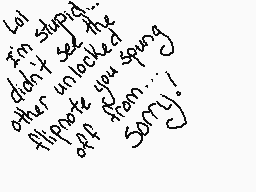 Lol
I'm stupid...
didn't see the
other unlocked
flipnote you spung
off from...
sorry!